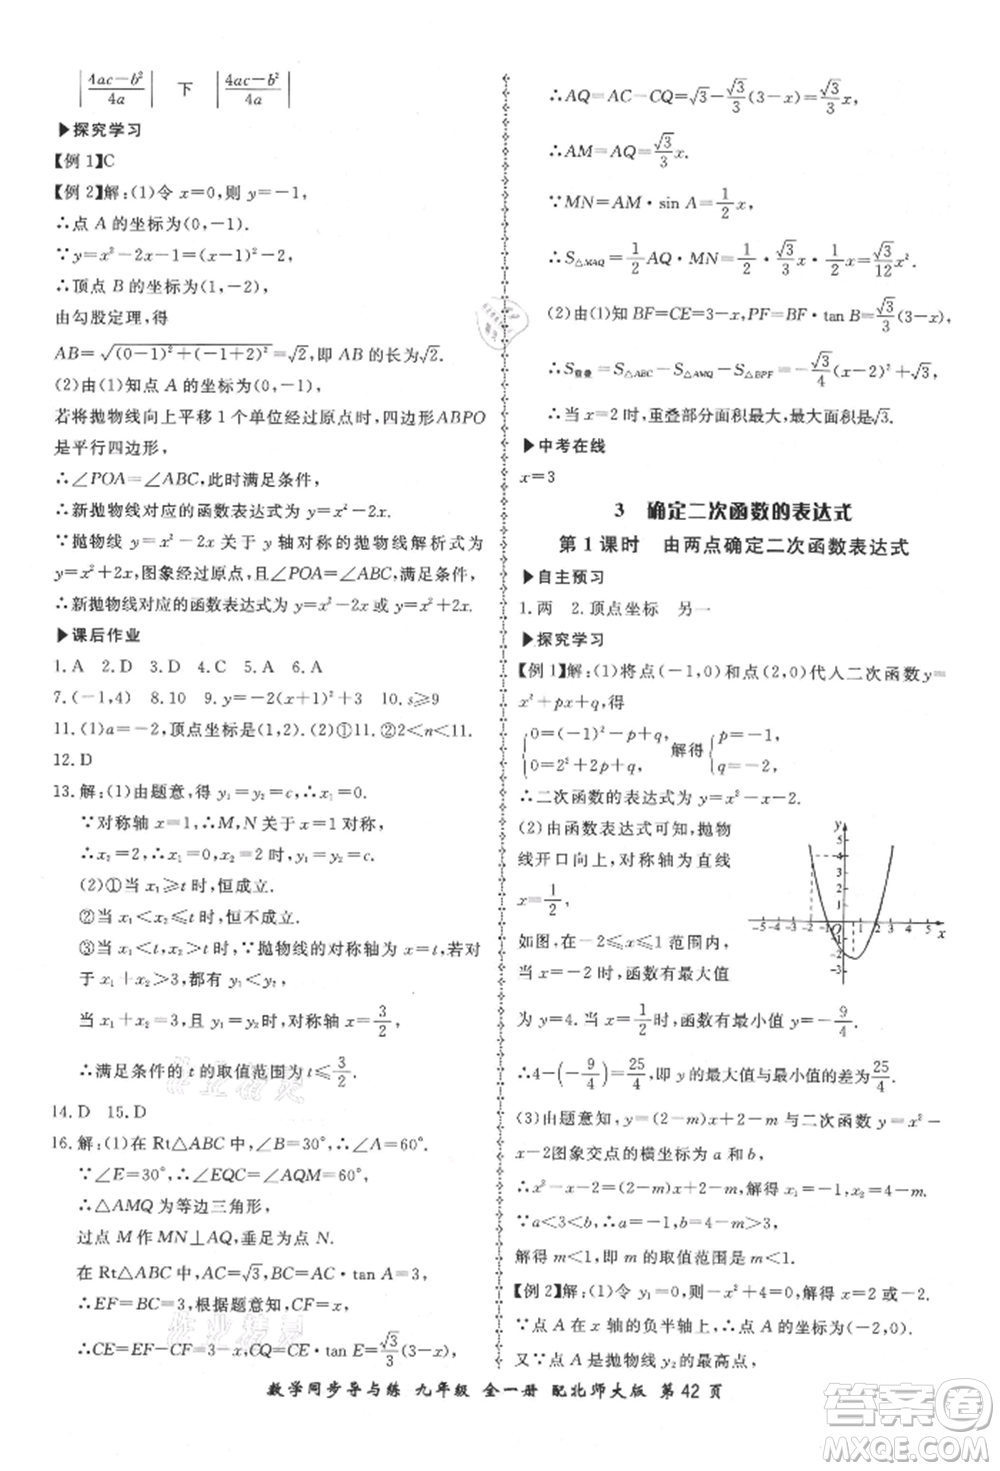 |4ac-b²/4a| 下 |4ac-b²/4a|
▶探究学习
【例1】C
【例2】解:(1)令 x=0,则 y=-1,
∴点 A 的坐标为(0,-1).
∵y=x²-2x-1=(x-1)²-2,
∴顶点 B 的坐标为(1,-2),
由勾股定理,得
AB=√((0-1)²+(-1+2)²)=√2,即 AB 的长为√2.
(2)由(1)知点 A 的坐标为(0,-1),
若将抛物线向上平移 1 个单位经过原点时,四边形 ABPO
是平行四边形,
∴∠POA=∠ABC,此时满足条件,
∴新抛物线对应的函数表达式为 y=x²-2x.
∵抛物线 y=x²-2x 关于 y 轴对称的抛物线解析式为
y=x²+2x,图象经过原点,且∠POA=∠ABC,
∴新抛物线对应的函数表达式为 y=x²+2x 或 y=x²-2x.
▶课后作业
1.A 2.D 3.D 4.C 5.A 6.A
7.(-1,4) 8.10 9.y=-2(x+1)²+3 10.s≥9
11.(1)a=-2,顶点坐标是(1,2).(2)①11.②2<n<11.
12.D
13.解:(1)由题意,得 y₁=y₂=c,∴x₁=0.
∵对称轴 x=1,∴M,N 关于 x=1 对称,
∴x₂=2,∴x₁=0,x₂=2 时,y₁=y₂=c.
(2)①当 x₁≥t 时,恒成立.
②当 x₁<x₂≤t 时,恒不成立.
③当 x₁<t,x₂>t 时,∵抛物线的对称轴为 x=t,若对于
x₁+x₂>3,都有 y₁<y₂,
当 x₁+x₂=3,且 y₁=y₂ 时,对称轴 x=3/2,
∴满足条件的 t 的取值范围为 t≤3/2.
14.D 15.D
16.解:(1)在 Rt△ABC 中,∠B=30°,∴∠A=60°.
∵∠E=30°,∴∠EQC=∠AQM=60°,
∴△AMQ 为等边三角形,
过点 M 作 MN⊥AQ,垂足为点 N.
在 Rt△ABC 中,∵AC=√3,∴BC=AC·tan A=3,
∴EF=BC=3,根据题意知,CF=x,
∴CE=EF-CF=3-x,CQ=CE·tan E=√3/3(3-x),
∴AQ=AC-CQ=√3-√3/3(3-x)=√3/3x,
∴AM=AQ=√3/3x,
∵MN=AM·sin A=1/2x,
∴S△MAQ=1/2AQ·MN=1/2·√3/3x·1/2x=√3/12x².
(2)由(1)知 BF=CE=3-x,PF=BF·tan B=√3/3(3-x),
∴S重叠=S△ABC-S△AMQ-S△BPF=-√3/4(x-2)²+√3,
∴当 x=2 时,重叠部分面积最大,最大面积是√3.
▶中考在线
x=3
3 确定二次函数的表达式
第 1 课时 由两点确定二次函数表达式
▶自主预习
1.两 2.顶点坐标 另一
▶探究学习
【例 1】解:(1)将点(-1,0)和点(2,0)代人二次函数 y=
x²+px+q,得
{0=(-1)²-p+q, 0=2²+2p+q, 解得{p=-1, q=-2,
∴二次函数的表达式为 y=x²-x-2.
(2)由函数表达式可知,抛物
线开口向上,对称轴为直线
x=1/2,
如图,在-2≤x≤1 范围内,
当 x=-2 时,函数有最大值
y 5 4 3 2 1
-5-4-3-2-1 O 1 2 3 4 5 x
-1 -2 -3
为 y=4.当 x=1/2时,函数有最小值 y=-9/4.
∴4-(-9/4)=25/4,即 y 的最大值与最小值的差为25/4.
(3)由题意知,y=(2-m)x+2-m 与二次函数 y=x²-x
-2图象交点的横坐标为 a 和 b,
∴x²-x-2=(2-m)x+2-m,解得 x₁=-1,x₂=4-m,
∵a<3<b,∴a=-1,b=4-m>3,
解得 m<1,即 m 的取值范围是 m<1.
【例 2】解:(1)令 y₁=0,则-x²-x+2=0,解得 x=-2或 x=2.